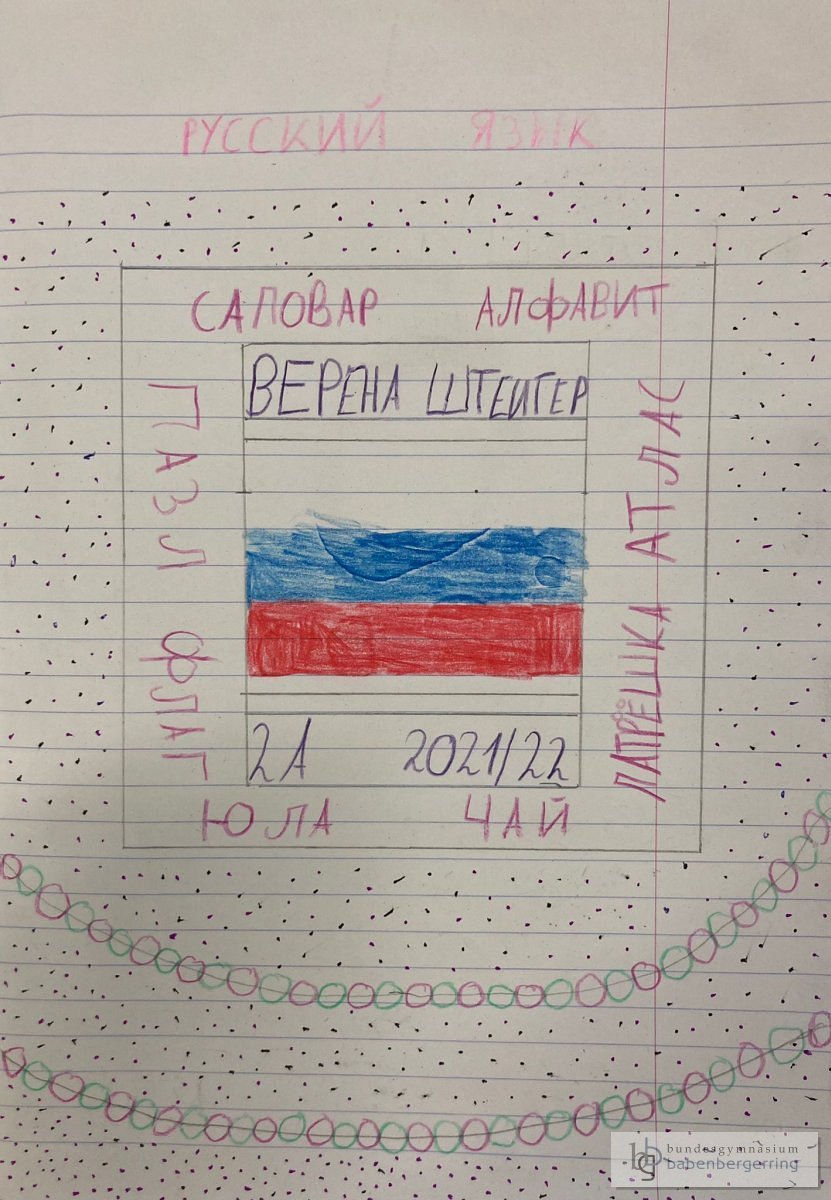 РУССКИЙ ЯЗИК
САПОВАР АЛФАВИТ
ВЕРЕНА ШТЕИГЕР
ПАЗЛ ФЛАГ
ПАТРЁШКА АТЛАС
2А 2021/22
ЮЛА ЧАЙ
bundesgymnasium
babenbergerring